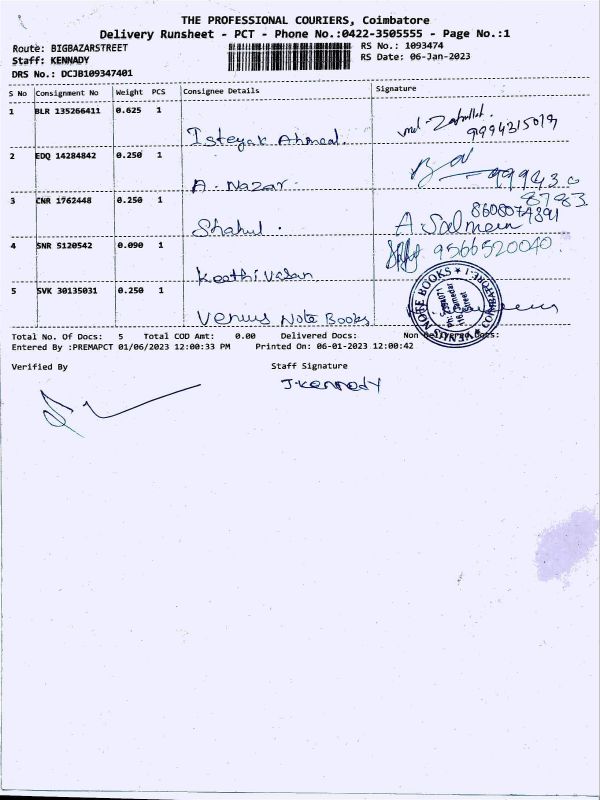 THE PROFESSIONAL COURIERS, Coimbatore
Delivery Runsheet - PCT - Phone No.:0422-3505555 - Page No.:1
Route: BIGBAZARSTREET
Staff: KENNADY
DRS No.: DCJB109347401
RS No.: 1093474
RS Date: 06-Jan-2023
S No Consignment No Weight PCS Consignee Details Signature
1 BLR 135266411 0.625 1
Isteyak Ahmed.
9994315019
2 EDQ 14284842 0.250 1
A. Nazar.
3 CNR 1762448 0.250 1
Shahul.
A. Salmein
4 SNR S120542 0.090 1
9566520040.
Keethi Vasan
5 SVK 30135031 0.250 1
Venus Note Books
VENUS NOTE BOOKS
Total No. Of Docs: 5 Total COD Amt: 0.00 Delivered Docs: Non
Entered By :PREMAPCT 01/06/2023 12:00:33 PM Printed On: 06-01-2023 12:00:42
Verified By Staff Signature
J.Kennady